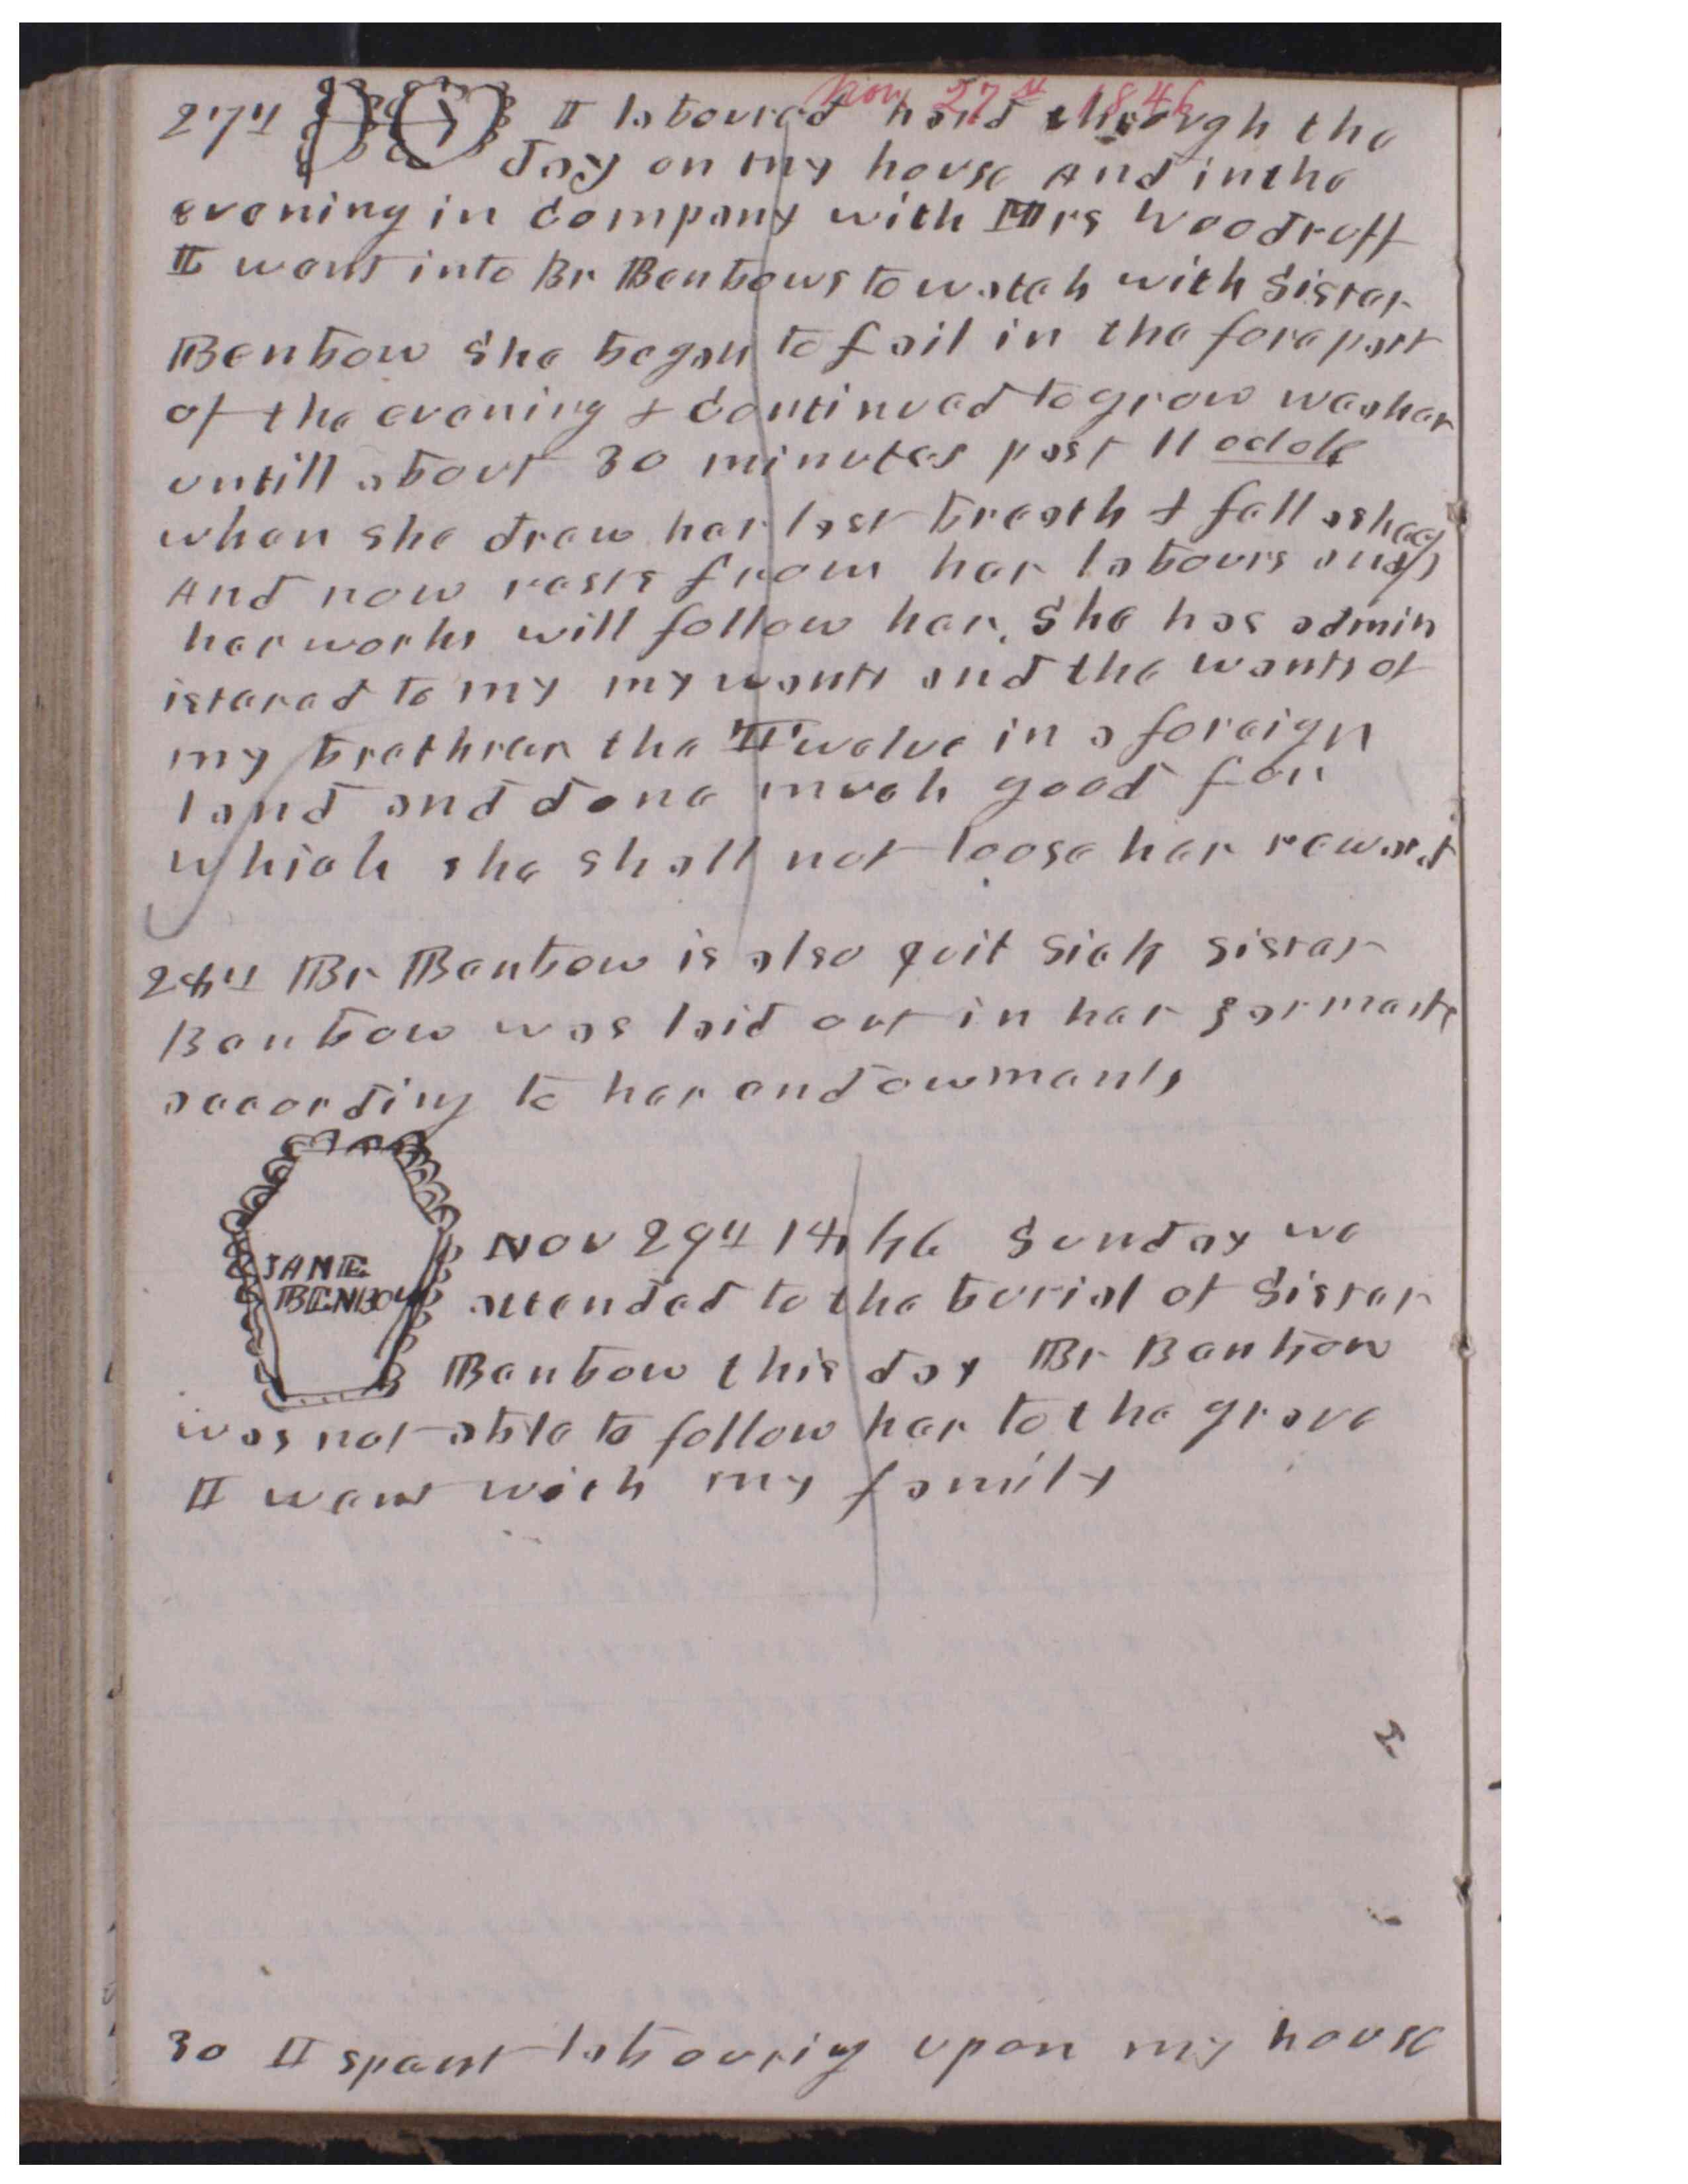 Nov 27th 1846
27th I laboured hard through the
day on my house And in the
evening in Company with Mrs Woodruff
I went into Br Benbows to watch with Sister
Benbow She began to fail in the forepart
of the evening & Continued to grow weaker
untill about 30 minutes past 11 oclok
when she drew her last breath & fell asleep
And now rests from her labours and
her works will follow her. She has admin
istered to my my wants and the wants of
my brethren the Twelve in a foreign
land and done much good for
which she shall not loose her reward
28th Br Benbow is also quit Sick Sister
Benbow was laid out in her garments
according to her endowments
JANE
BENBOW
Nov 29th 1846 Sunday we
attended to the burial of Sister
Benbow this day Br Benbow
was not able to follow her to the grave
I went with my family
30 I spent labouring upon my house